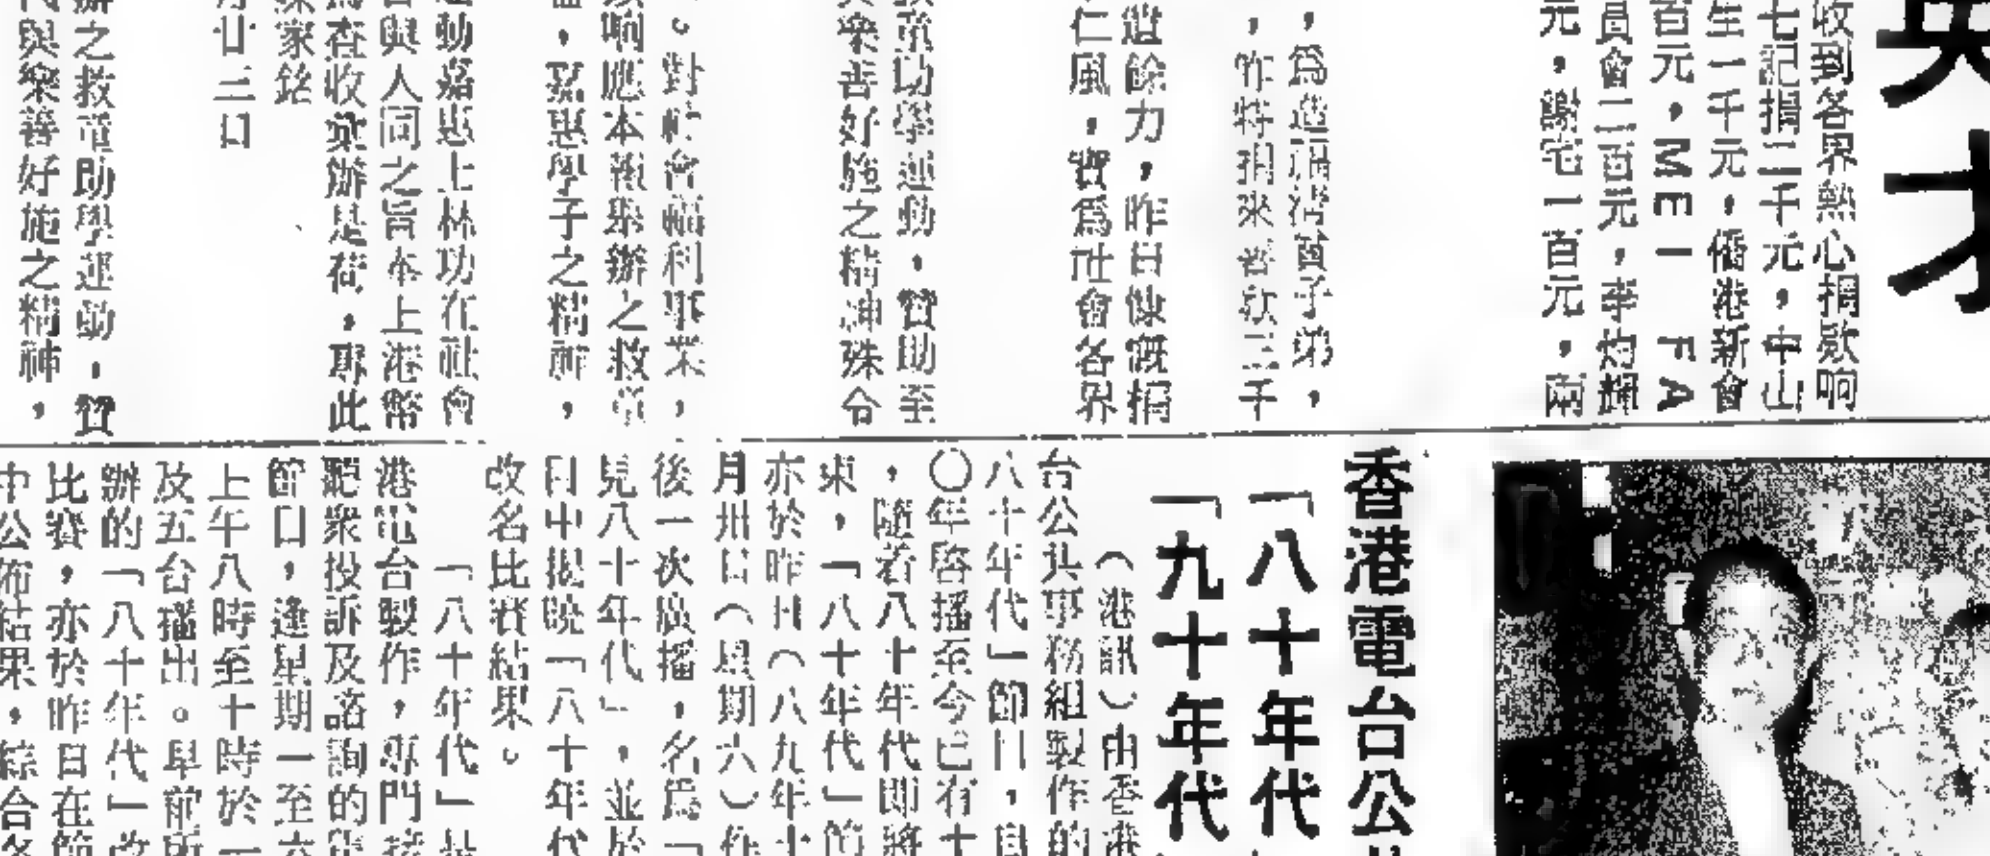 英才
收到各界熱心捐款响
七記捐二千元，中山
生一千元，僑港新會
百元，ME I FA
員會二百元，李灼輝
元，謝宅一百元，兩
，爲造福清貧子弟，
，昨特捐來善欵三千
遺餘力，昨日慷慨捐
仁風，實爲社會各界
救童助學運動，贊助至
樂善好施之精神殊令
。對社會福利事業，
响應本報舉辦之救童
，嘉惠學子之精神，
動嘉惠上林功在社會
與人同之旨奉上港幣
查收彙辦是荷，專此
家銘
廿三日
辦之救童助學運動，贊
與樂善好施之精神，
香港電台公
「八十年代
「九十年代
（港訊）由香港
台公共事務組製作的
八十年代」節目，自
〇年啓播至今已有十
，隨着八十年代即將
束，「八十年代」節
亦於昨日（八九年十
月卅日（星期六）作
後一次廣播，名爲「
見八十年代」，並於
日中揭曉「八十年代
改名比賽結果。
「八十年代」是
港電台製作，專門接
聽衆投訴及諮詢的
節目，逢星期一至六
上午八時至十時於一
及五台播出。早前所
辦的「八十年代」改
比賽，亦於昨日在節
中公佈結果，綜合各